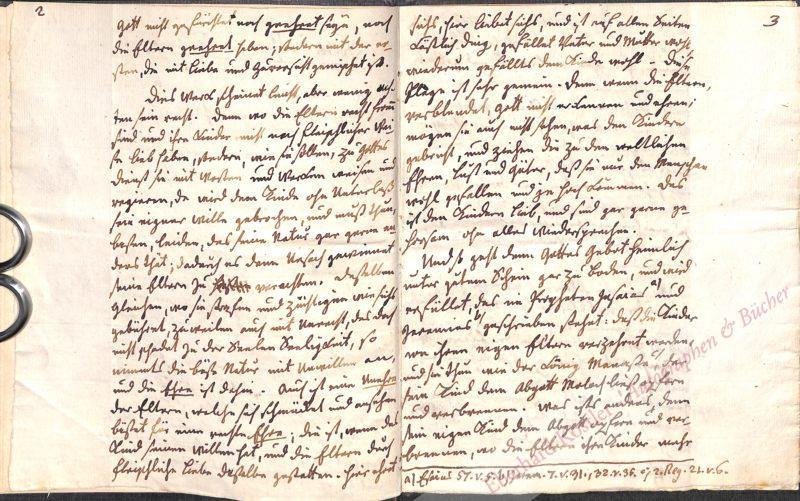 2
Gott nicht gefürchtet noch geehret seyn, noch
die Eltern geehret haben; sondern mit der er-
sten, die mit Liebe und Zuversicht gemischet ist.
Dies Werck scheinet leicht, aber wenig ach-
ten sein recht. Denn wo die Eltern recht fromm
sind und ihre Kinder nicht nach fleischlicher Wei-
se lieb haben, sondern, wie sie sollen, zu Gottes
Dienst sie mit Worten und Wercken weisen und
regieren, da wird dem Kinde ohn Unterlaß
sein eigener Wille gebrochen, und muß thun,
lassen, leiden, das seine Natur gar gerne an-
ders thät; dadurch es denn Ursach gewinnet
seine Eltern zu verachten. Desselben
gleichen, wo sie strafen und züchtigen wie sichs
gebühret, zuweilen auch mit Unrecht, das doch
nicht schadet zu der Seelen Seeligkeit, so
nimmts die böse Natur mit Unwillen an,
und die Ehre ist dahin. Auch ist eine Unehre
der Eltern, welche sich schmücket und ansehen
lässet für eine rechte Ehre; die ist, wenn das
Kind seinen Willen hat, und die Eltern durch
fleischliche Liebe dasselbe gestatten. Hier ehret
3
sichs, hier liebet sichs, und ist auf allen Seiten
köstlich Ding, gefället Vater und Mutter wohl
wiederum gefällts dem Kinde wohl. Diese
Plage ist sehr gemein. Denn wenn die Eltern,
verblendet, Gott nicht erkennen und ehren;
mögen sie auch nicht sehen, was den Kindern
gebricht, und ziehen sie zu den weltlichen
Ehren, Lust und Güter, daß sie nur den Menschen
wohl gefallen und je hoch kommen. Das
ist den Kindern lieb, und sind gar gerne ge-
horsam ohn alles Wiedersprechen.
Und so geht denn Gottes Gebot heimlich
unter gutem Schein gar zu Boden, und wird
erfüllet, das im Propheten Jesaias a) und
Jeremias b) geschrieben stehet: daß die Kinder
von ihren eigen Eltern verzehret werden,
und sie thun wie der König Manasse c) der
sein Kind dem Abgott Moloch ließ opfern
und verbrennen. Was ists anders, denn
sein eigen Kind dem Abgott opfern und ver-
brennen, wo die Eltern ihre Kinder mehr
a) Esaias 57. v. 5. b) Jerem. 7. v. 31., 32. v. 35. c) 2. Reg. 21. v. 6.